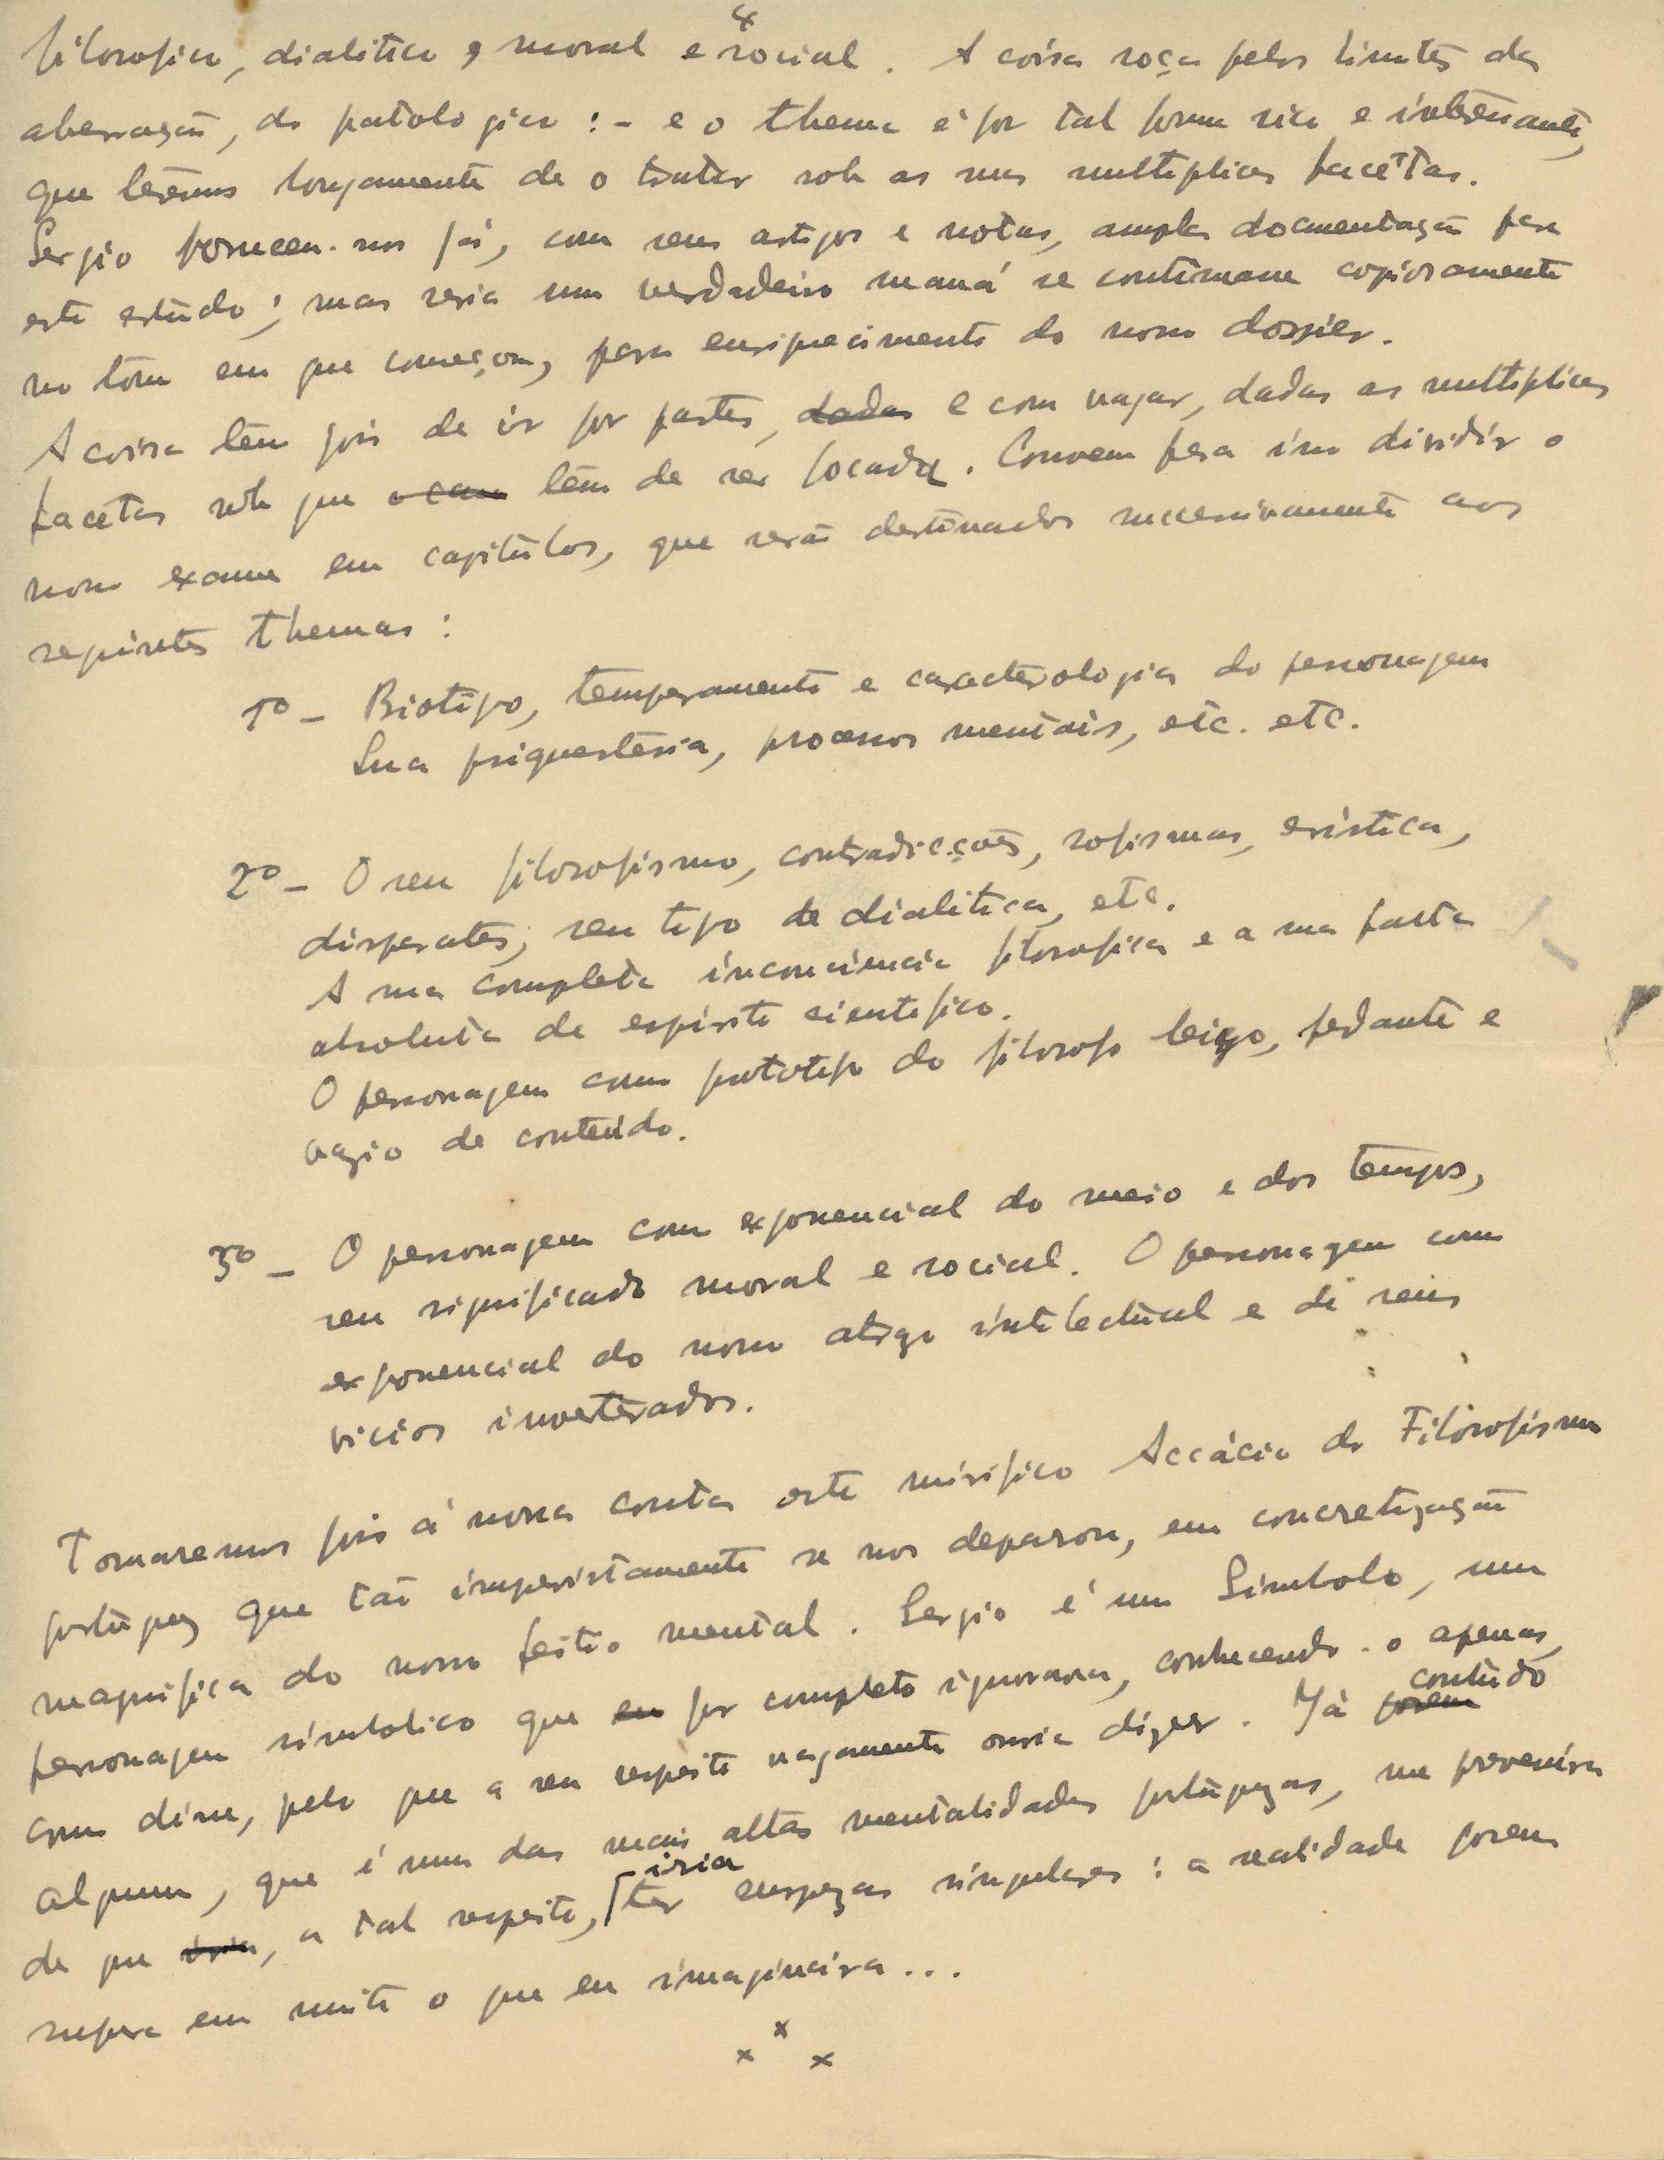 4
filosofico, dialitico, moral e social. A coisa roça pelos limites da
aberração, do patologico: - e o thema é por tal forma rico e interessante,
que terêmos longamente de o tratar sob as suas multiplices facêtas.
Sergio forneceu-nos já, com seus artigos e notas, ampla documentação para
este estudo; mas seria um verdadeiro maná se continuasse copiosamente
no tom em que começou, para enriquecimento do nosso dossier.
A coisa têm pois de ir por partes, dadas e com vagar, dadas as multiplices
facetas sob que o caso têm de ser focada. Convem para isso dividir o
nosso exame em capitulos, que serão destinados sucessivamente aos
seguintes themas:
1º - Biotipo, temperamento e caracterologia do personagem
Sua psiquesteria, processos mentais, etc. etc.
2º - O seu filosofismo, contradicções, sofismas, eristica,
disparates, seu tipo de dialitica, etc.
A sua completa inconsciencia filosofica e a sua falta
absoluta de espirito cientifico.
O personagem como prototipo do filosofo leigo, pedante e
vazio de conteúdo.
3º - O personagem como exponencial do meio e dos tempos,
seu significado moral e social. O personagem como
exponencial do nosso atrazo intelectual e de seus
vicios inveterados.
Tomaremos pois á nossa conta este mirifico Accácio do Filosofismo
portuguez que tão imprevistamente se nos deparou, em concretização
magnifica do nosso feitio mental. Sergio é um Simbolo, um
personagem simbolico que eu por completo ignorava, conhecendo-o apenas,
como disse, pelo que a seu respeito vagamente ouvia dizer. Já porem contudo
alguem, que é uma das mais altas mentalidades portuguezas, me prevenira
de que iria, a tal respeito, iria ter surprezas singulares: a realidade porem
supera em muito o que eu imaginára...
x x x